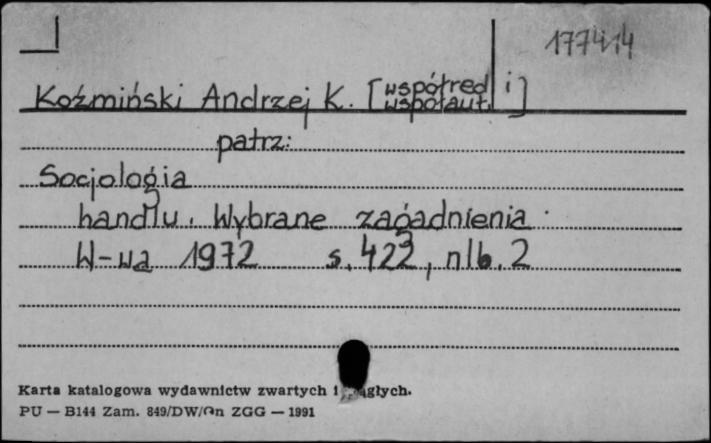 177414
Koźmiński Andrzej K. [współred i
współaut.]
patrz:
Socjologia
handlu. Wybrane zagadnienia.
W-wa 1972 s. 422, nlb. 2
Karta katalogowa wydawnictw zwartych i ciągłych.
PU — B144 Zam. 849/DW/On ZGG — 1991